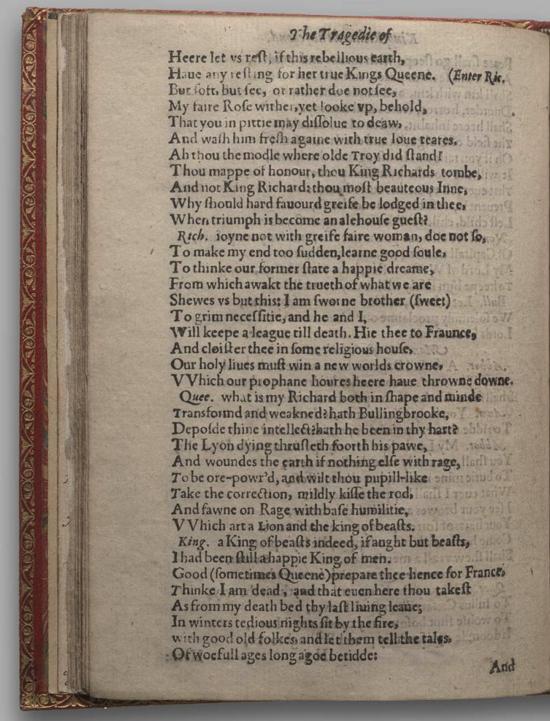 The Tragedie of
Heere let vs rest, if this rebellious earth,
Haue any resting for her true Kings Queene. (Enter Ric.
But soft, but see, or rather doe not see,
My faire Rose wither, yet looke vp, behold,
That you in pittie may dissolue to deaw,
And wash him fresh againe with true loue teares.
Ah thou the modle where olde Troy did stand!
Thou mappe of honour, thou King Richards tombe,
And not King Richard: thou most beauteous Inne,
Why should hard fauourd greife be lodged in thee,
When triumph is become an alehouse guest?
Rich. ioyne not with greife faire woman, doe not so,
To make my end too sudden, learne good soule,
To thinke our former state a happie dreame,
From which awakt the trueth of what we are
Shewes vs but this: I am sworne brother (sweet)
To grim necessitie, and he and I,
Will keepe a league till death. Hie thee to Fraunce,
And cloister thee in some religious house,
Our holy liues must win a new worlds crowne,
VVhich our prophane houres heere haue throwne downe.
Quee. what is my Richard both in shape and minde
Transformd and weakned? hath Bullingbrooke,
Deposde thine intellect? hath he been in thy hart?
The Lyon dying thrusteth foorth his pawe,
And woundes the earth if nothing else with rage,
To be ore-powr'd, and wilt thou pupill-like
Take the correction, mildly kisse the rod,
And fawne on Rage with base humilitie,
VVhich art a Lion and the king of beasts.
King. a King of beasts indeed, if aught but beasts,
I had been still a happie King of men.
Good (sometimes Queene) prepare thee hence for France,
Thinke I am dead, and that euen here thou takest
As from my death bed thy last liuing leaue;
In winters tedious nights sit by the fire,
with good old folkes, and let them tell the tales,
Of woefull ages long agoe betidde:
And